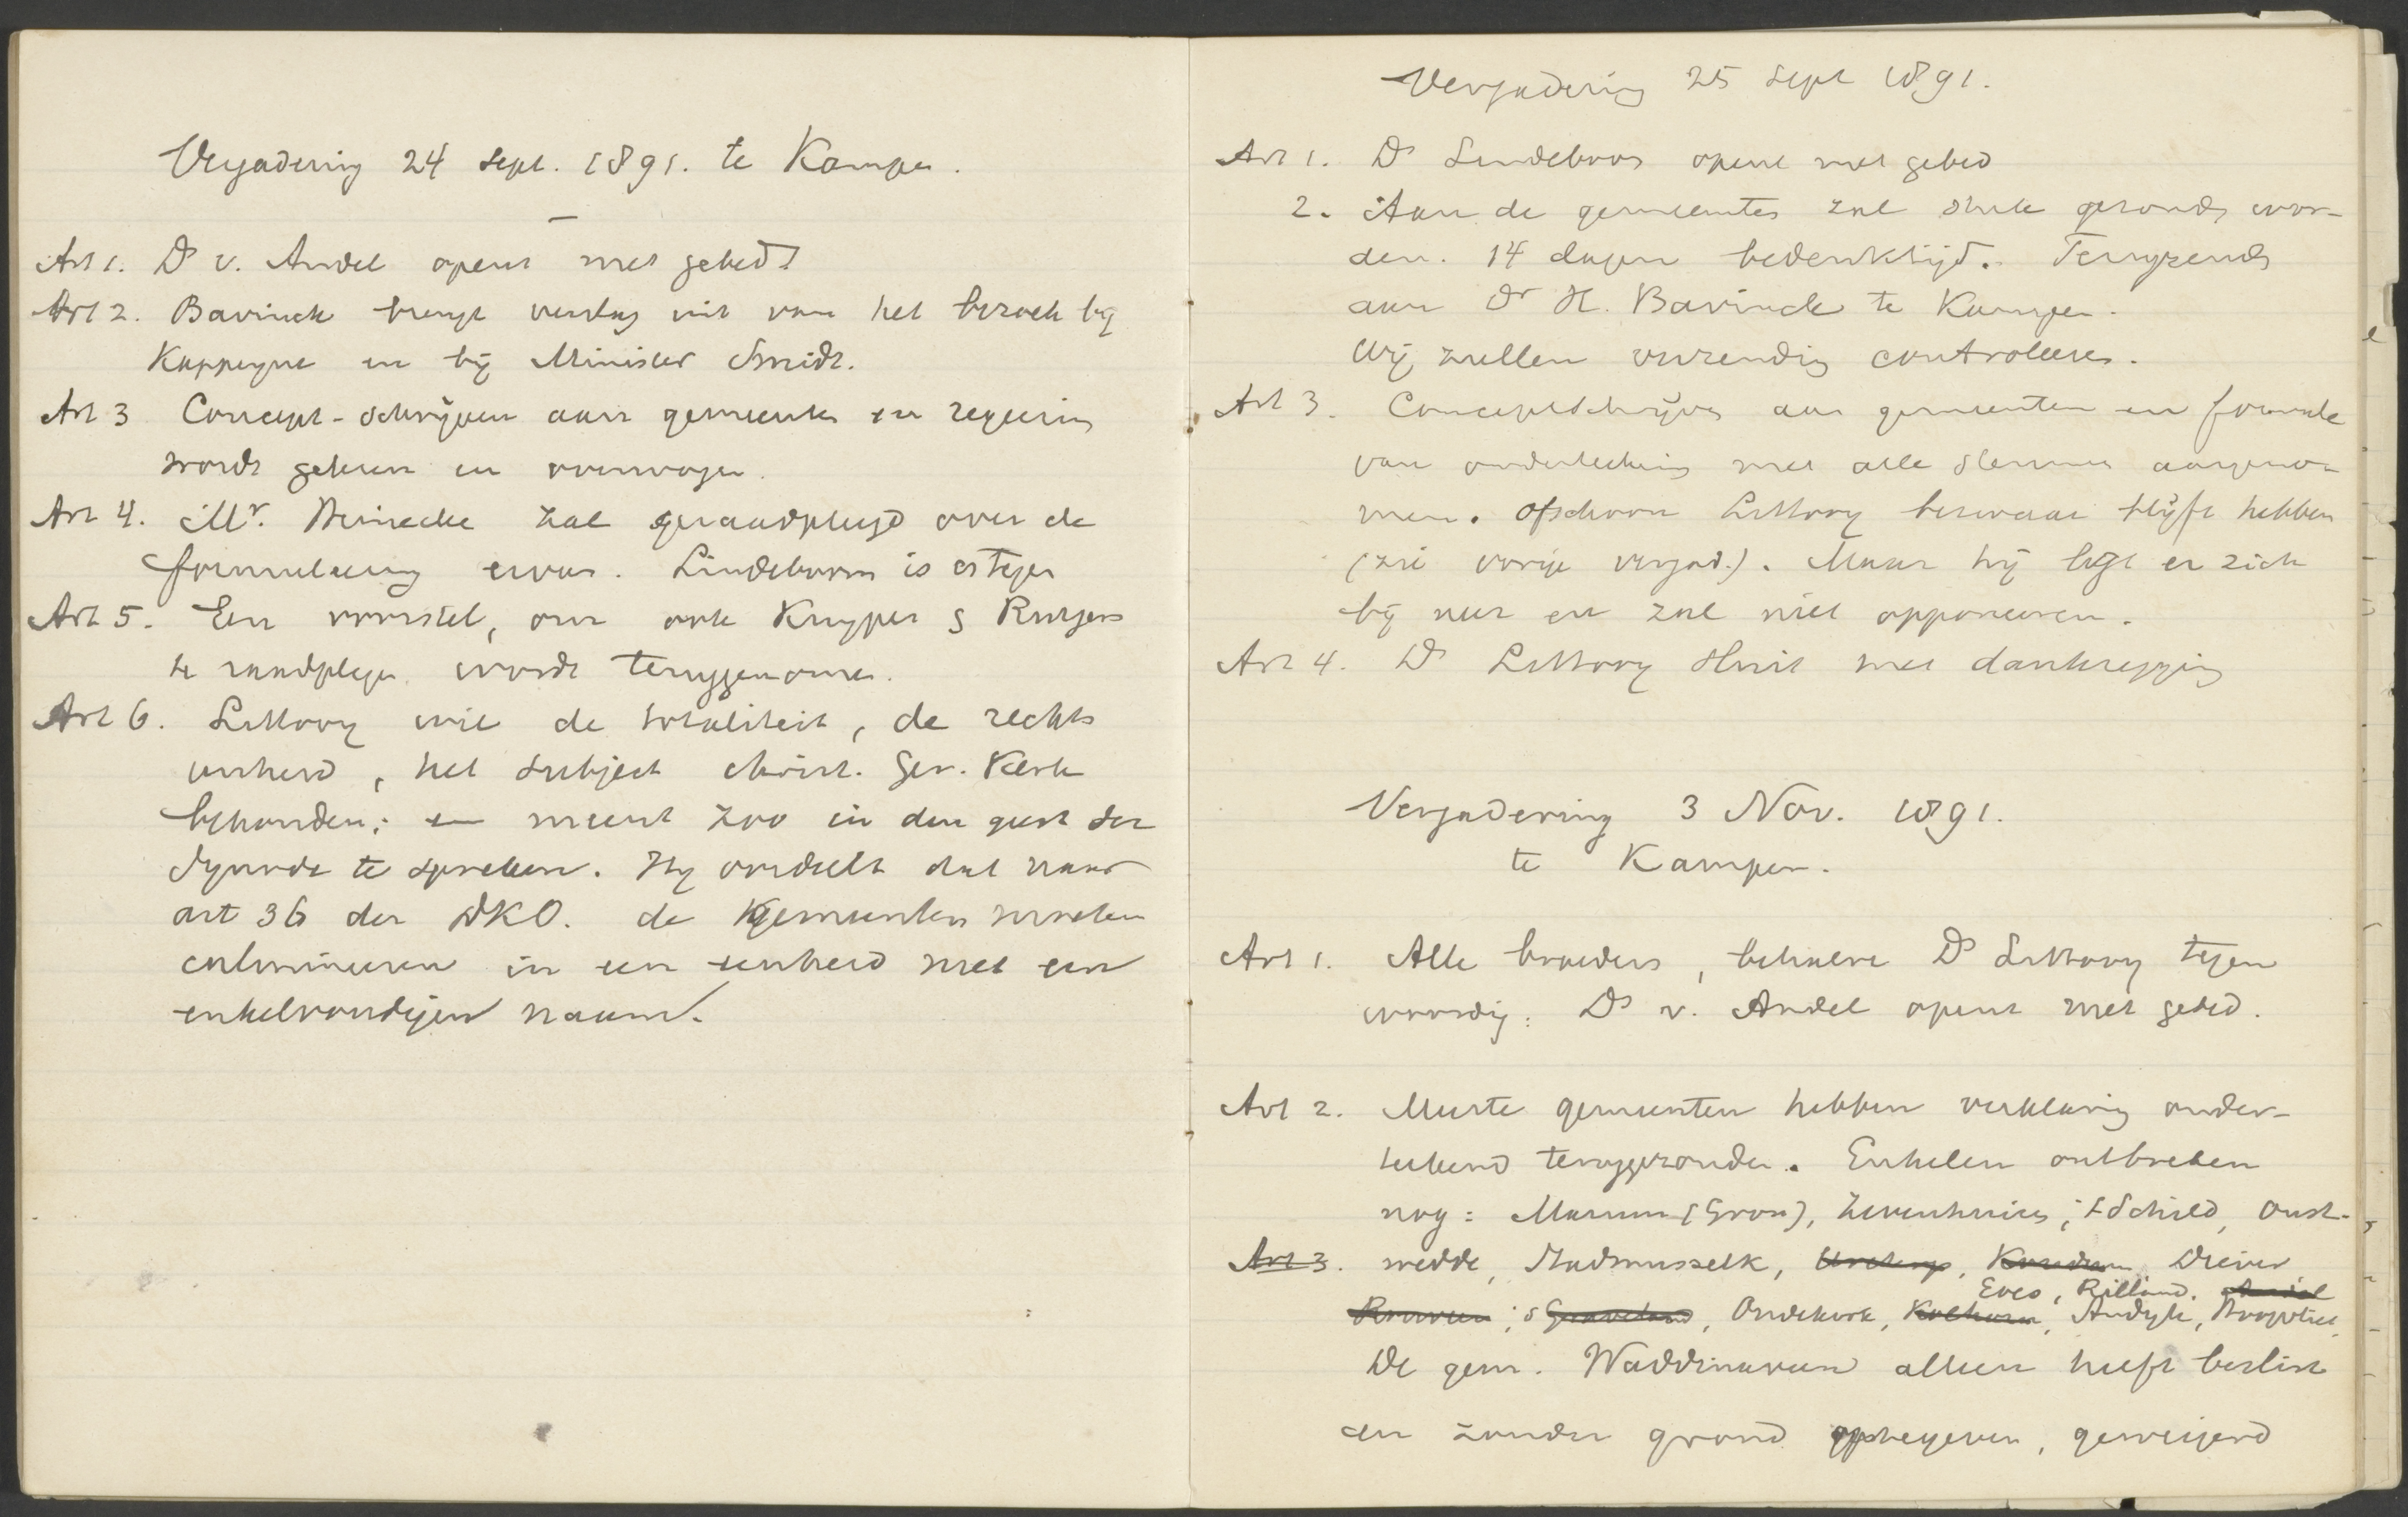 Vergadering 24 Sept. 1891. te Kampen.
Art 1. Ds v. Andel opent met gebed.
Art 2. Bavinck brengt verslag uit van het bezoek bij
Kappeyne en bij Minister Smidt.
Art 3 Concept-schrijven aan gemeenten en regeering
wordt gelezen en overwogen.
Art 4. Mr. Meinecke zal geraadpleegd over de
formuleering ervan. Lindeboom is er tegen
Art 5. Een voorstel, om ook Kuyper & Rutgers
te raadplegen wordt teruggenomen.
Art 6. Littooy wil de totaliteit, de rechts
eenheid, het subject Christ. Ger. Kerk
behouden; en meent zoo in den geest der
Synode te spreken. Hij oordeelt dat naar
art 36 der DKO. de gemeenten moeten
culmineeren in een eenheid met een
enkelvoudigen naam.
Vergadering 25 Sept 1891.
Art 1. Ds Lindeboom opent met gebed
2. Aan de gemeentes zal stuk gezonden wor-
den. 14 dagen bedenktijd. Terugzending
aan Dr H. Bavinck te Kampen.
Wij zullen controleeren.
Art 3. Conceptschrijven aan gemeenten en formule
van onderteekening met alle stemmen aangeno-
men. Ofschoon Littooy bezwaar blijft hebben
(zie vorige vergad.). Maar hij legt er zich
bij neer en zal niet opponeeren.
Art 4. Ds Littooy sluit met dankzegging
Vergadering 3 Nov. 1891.
te Kampen.
Art 1. Alle broeders, behalve Ds Littooy tegen
woordig. Ds v. Andel opent met gebed.
Art 2. Meeste gemeenten hebben verklaring onder-
teekend teruggezonden. Enkelen ontbreken
nog: Marum (Gron), Zevenhuizen, 't Schild, Onst-
Art 3. wedde, Stadmusselk, Ureterp, Diever
Eves, Rilland, Andel
's Graveland, Oudekerk, Kolhorn, Andyk,
De gem. Waddinxveen alleen heeft beslist
en zonder grond optegeven, geweigerd